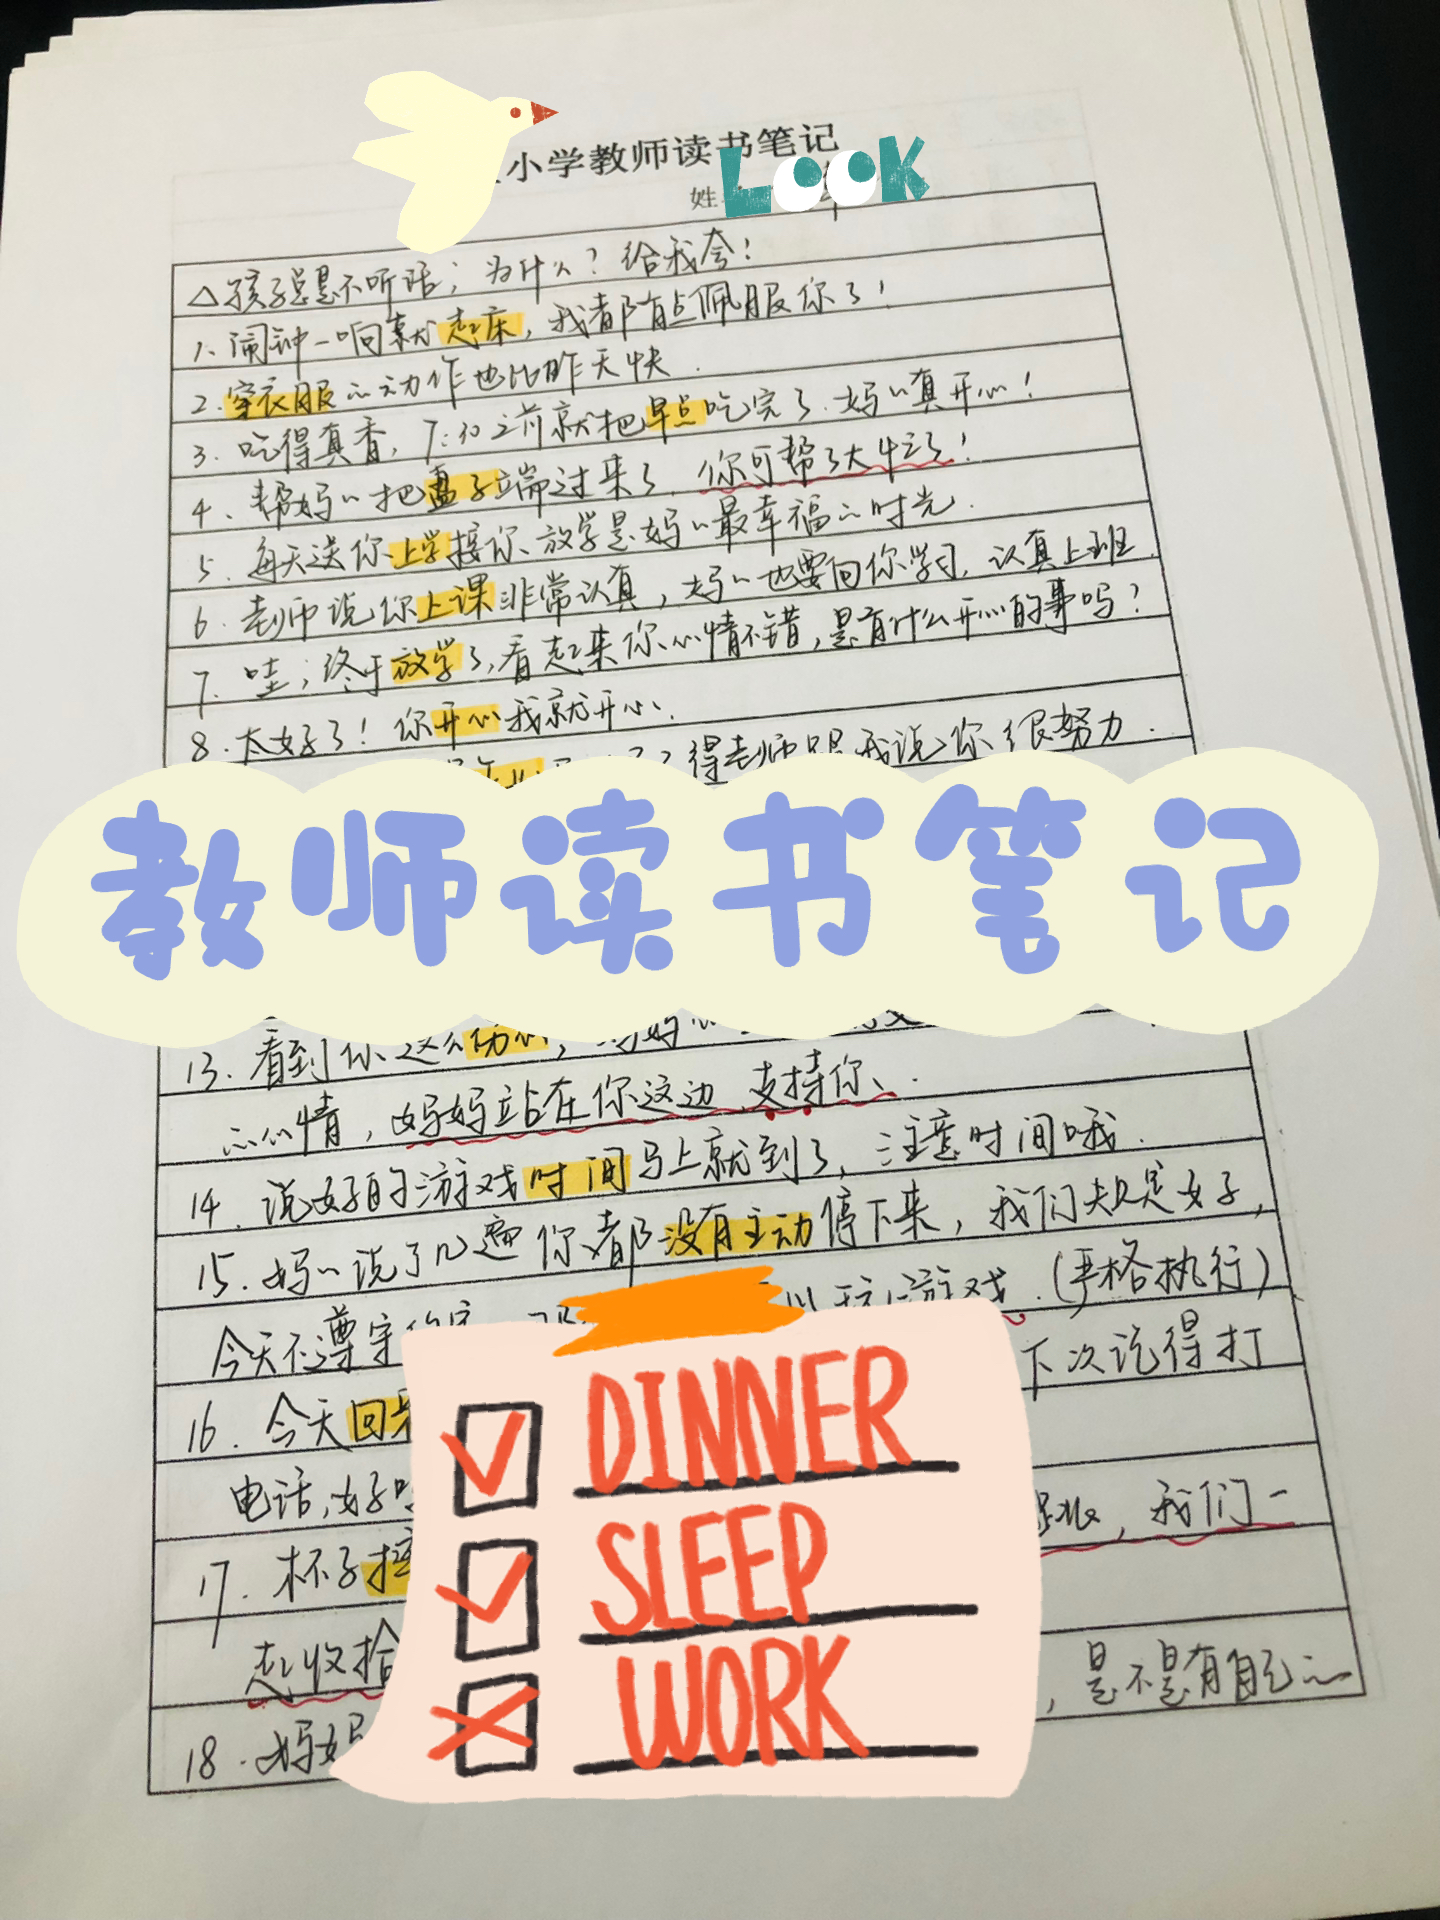 小学教师读书笔记
LOOK
姓
△孩子总是不听话；为什么？给我夸！
1、闹钟一响就起床，我都有点佩服你了！
2.穿衣服的动作也比昨天快.
3.吃得真香，7:10之前就把早点吃完了.妈〃真开心！
4、帮妈〃把盘子端过来了.你可帮了大忙了！
5.每天送你上学接你放学是妈〃最幸福的时光.
6.老师说你上课非常认真，妈〃也要向你学习，认真上班.
7.哇；终于放学了，看起来你心情不错，是有什么开心的事吗？
8.太好了！你开心我就开心.
得老师跟我说你很努力.
教师读书笔记
13.看到你这么伤
的心情，妈妈站在你这边，支持你.
14.说好的游戏时间马上就到了，注意时间哦.
15.妈〃说了几遍你都没有主动停下来，我们规定好，
今天不遵守 游戏.(严格执行)
16.今天回 下次记得打
电话，好
，我们一
17.杯子
起收拾
18.妈妈 ，是不是有自己的
DINNER
SLEEP
WORK